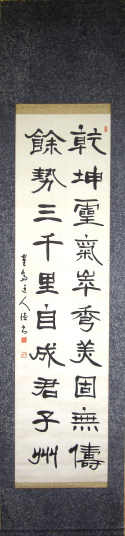 乾坤靈氣萃秀美固無儔
餘勢三千里自成君子州